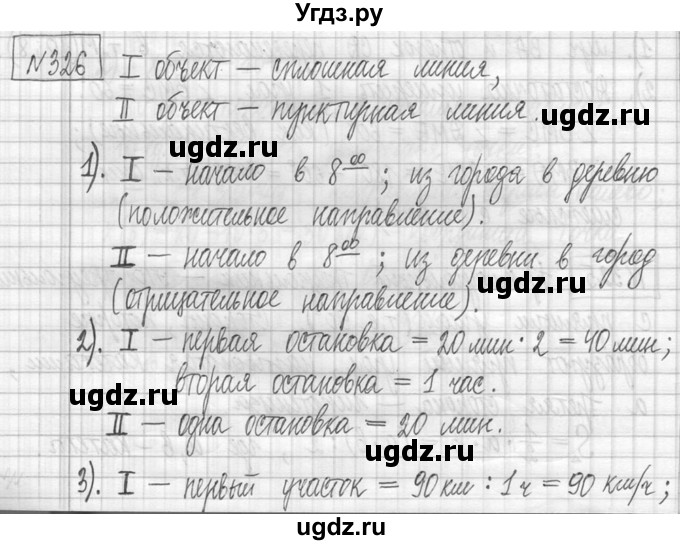 Угдз.ру
№326 I объект — сплошная линия,
II объект — пунктирная линия.
ugdz.ru ugdz.ru
1). I — начало в 8⁰⁰ ; из города в деревню
(положительное направление).
II — начало в 8⁰⁰ ; из деревни в город
ugdz.ru
(отрицательное направление).
2). I — первая остановка = 20 мин · 2 = 40 мин;
вторая остановка = 1 час.
ugdz.ru
II — одна остановка = 20 мин.
ugdz.ru
3). I — первый участок = 90 км : 1 ч = 90 км/ч;
ugdz.ru